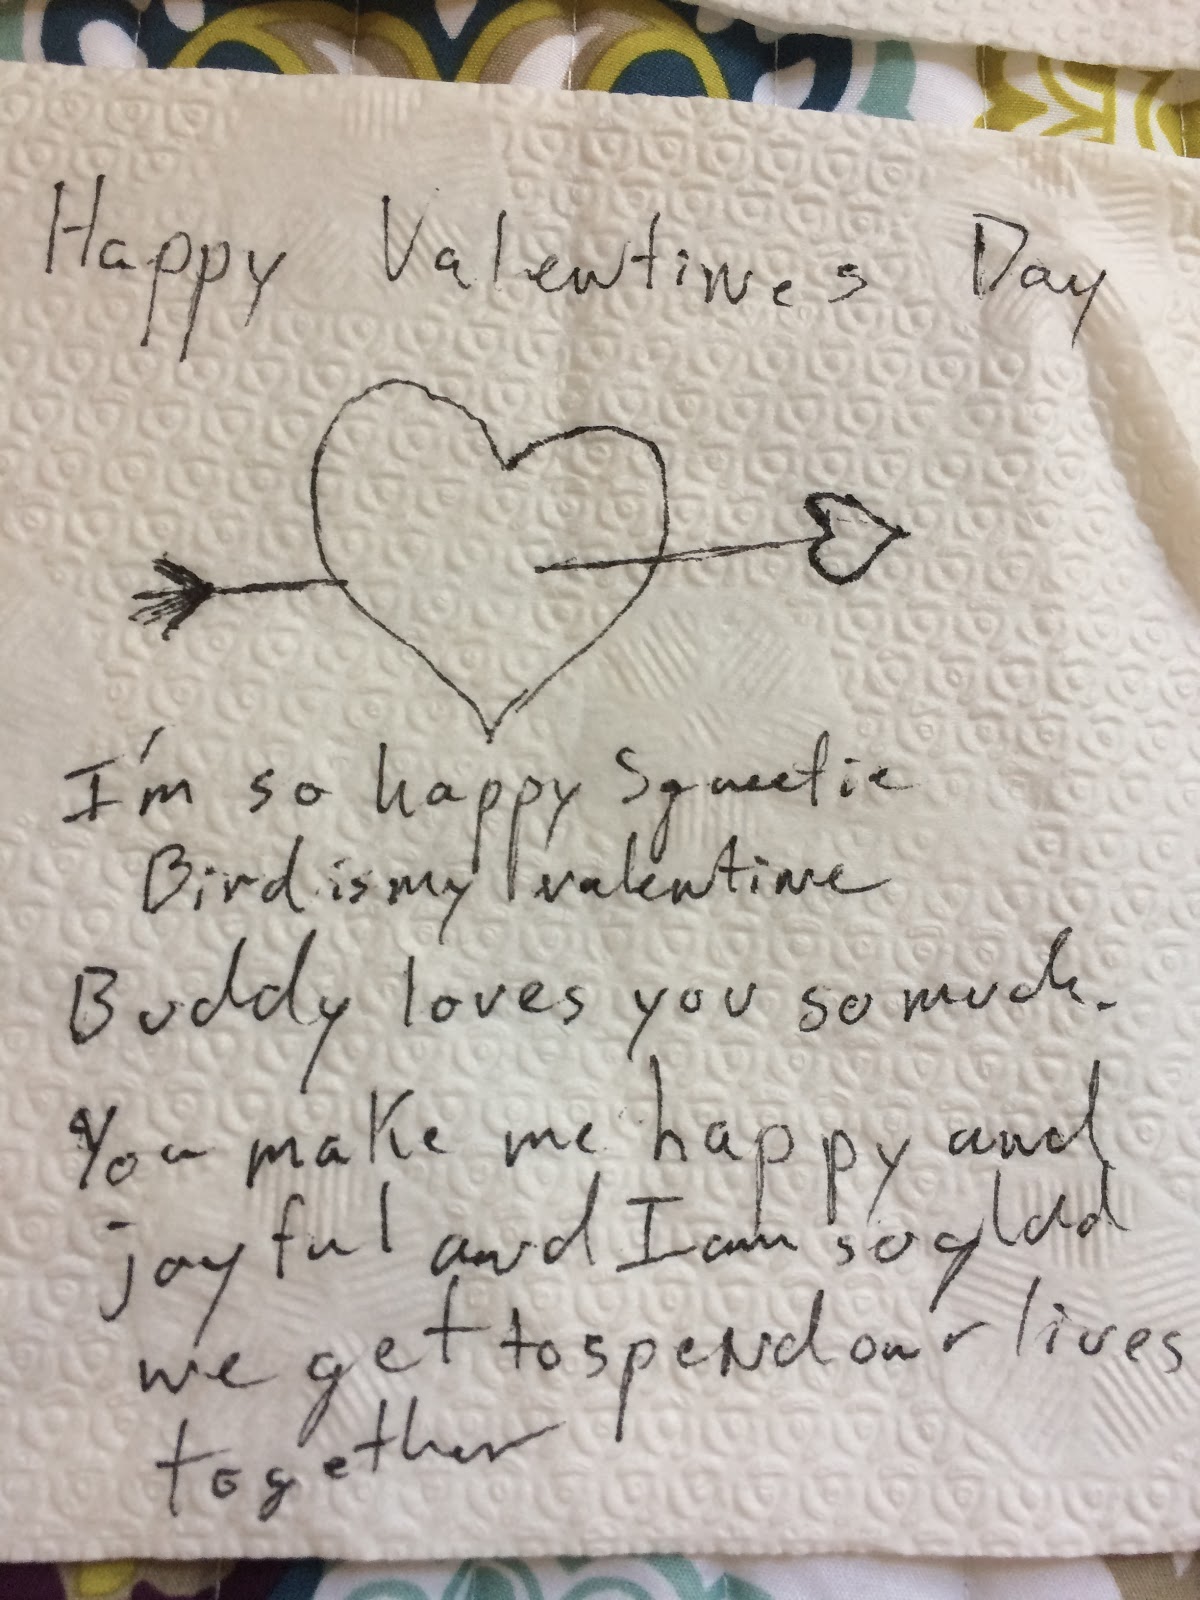 Happy Valentines Day
I'm so happy Sgueetie
Bird is my valentine
Buddy loves you so much.
You make me happy and
joyful and I am so glad
we get to spend our lives
together